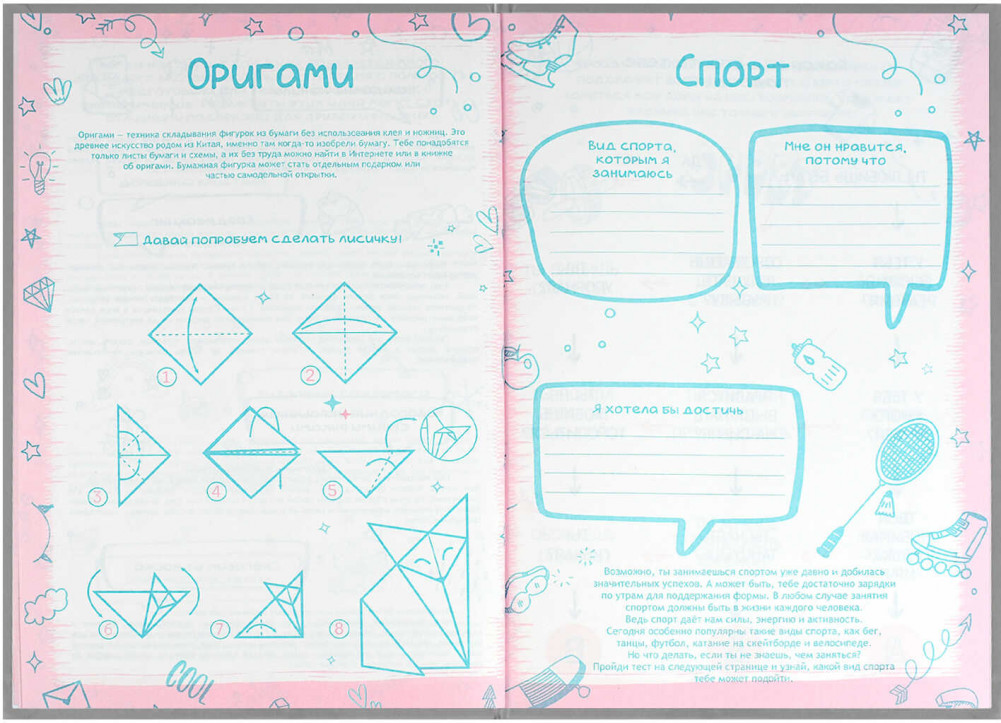 Оригами
Оригами — техника складывания фигурок из бумаги без использования клея и ножниц. Это
древнее искусство родом из Китая, именно там когда-то изобрели бумагу. Тебе понадобятся
только листы бумаги и схемы, а их без труда можно найти в Интернете или в книжке
об оригами. Бумажная фигурка может стать отдельным подарком или
частью самодельной открытки.
Давай попробуем сделать лисичку!
1
2
3
4
5
6
7
8
COOL
Спорт
Вид спорта,
которым я
занимаюсь
Мне он нравится,
потому что
Я хотела бы достичь
Возможно, ты занимаешься спортом уже давно и добилась
значительных успехов. А может быть, тебе достаточно зарядки
по утрам для поддержания формы. В любом случае занятия
спортом должны быть в жизни каждого человека.
Ведь спорт даёт нам силы, энергию и активность.
Сегодня особенно популярны такие виды спорта, как бег,
танцы, футбол, катание на скейтборде и велосипеде.
Но что делать, если ты не знаешь, чем заняться?
Пройди тест на следующей странице и узнай, какой вид спорта
тебе может подойти.